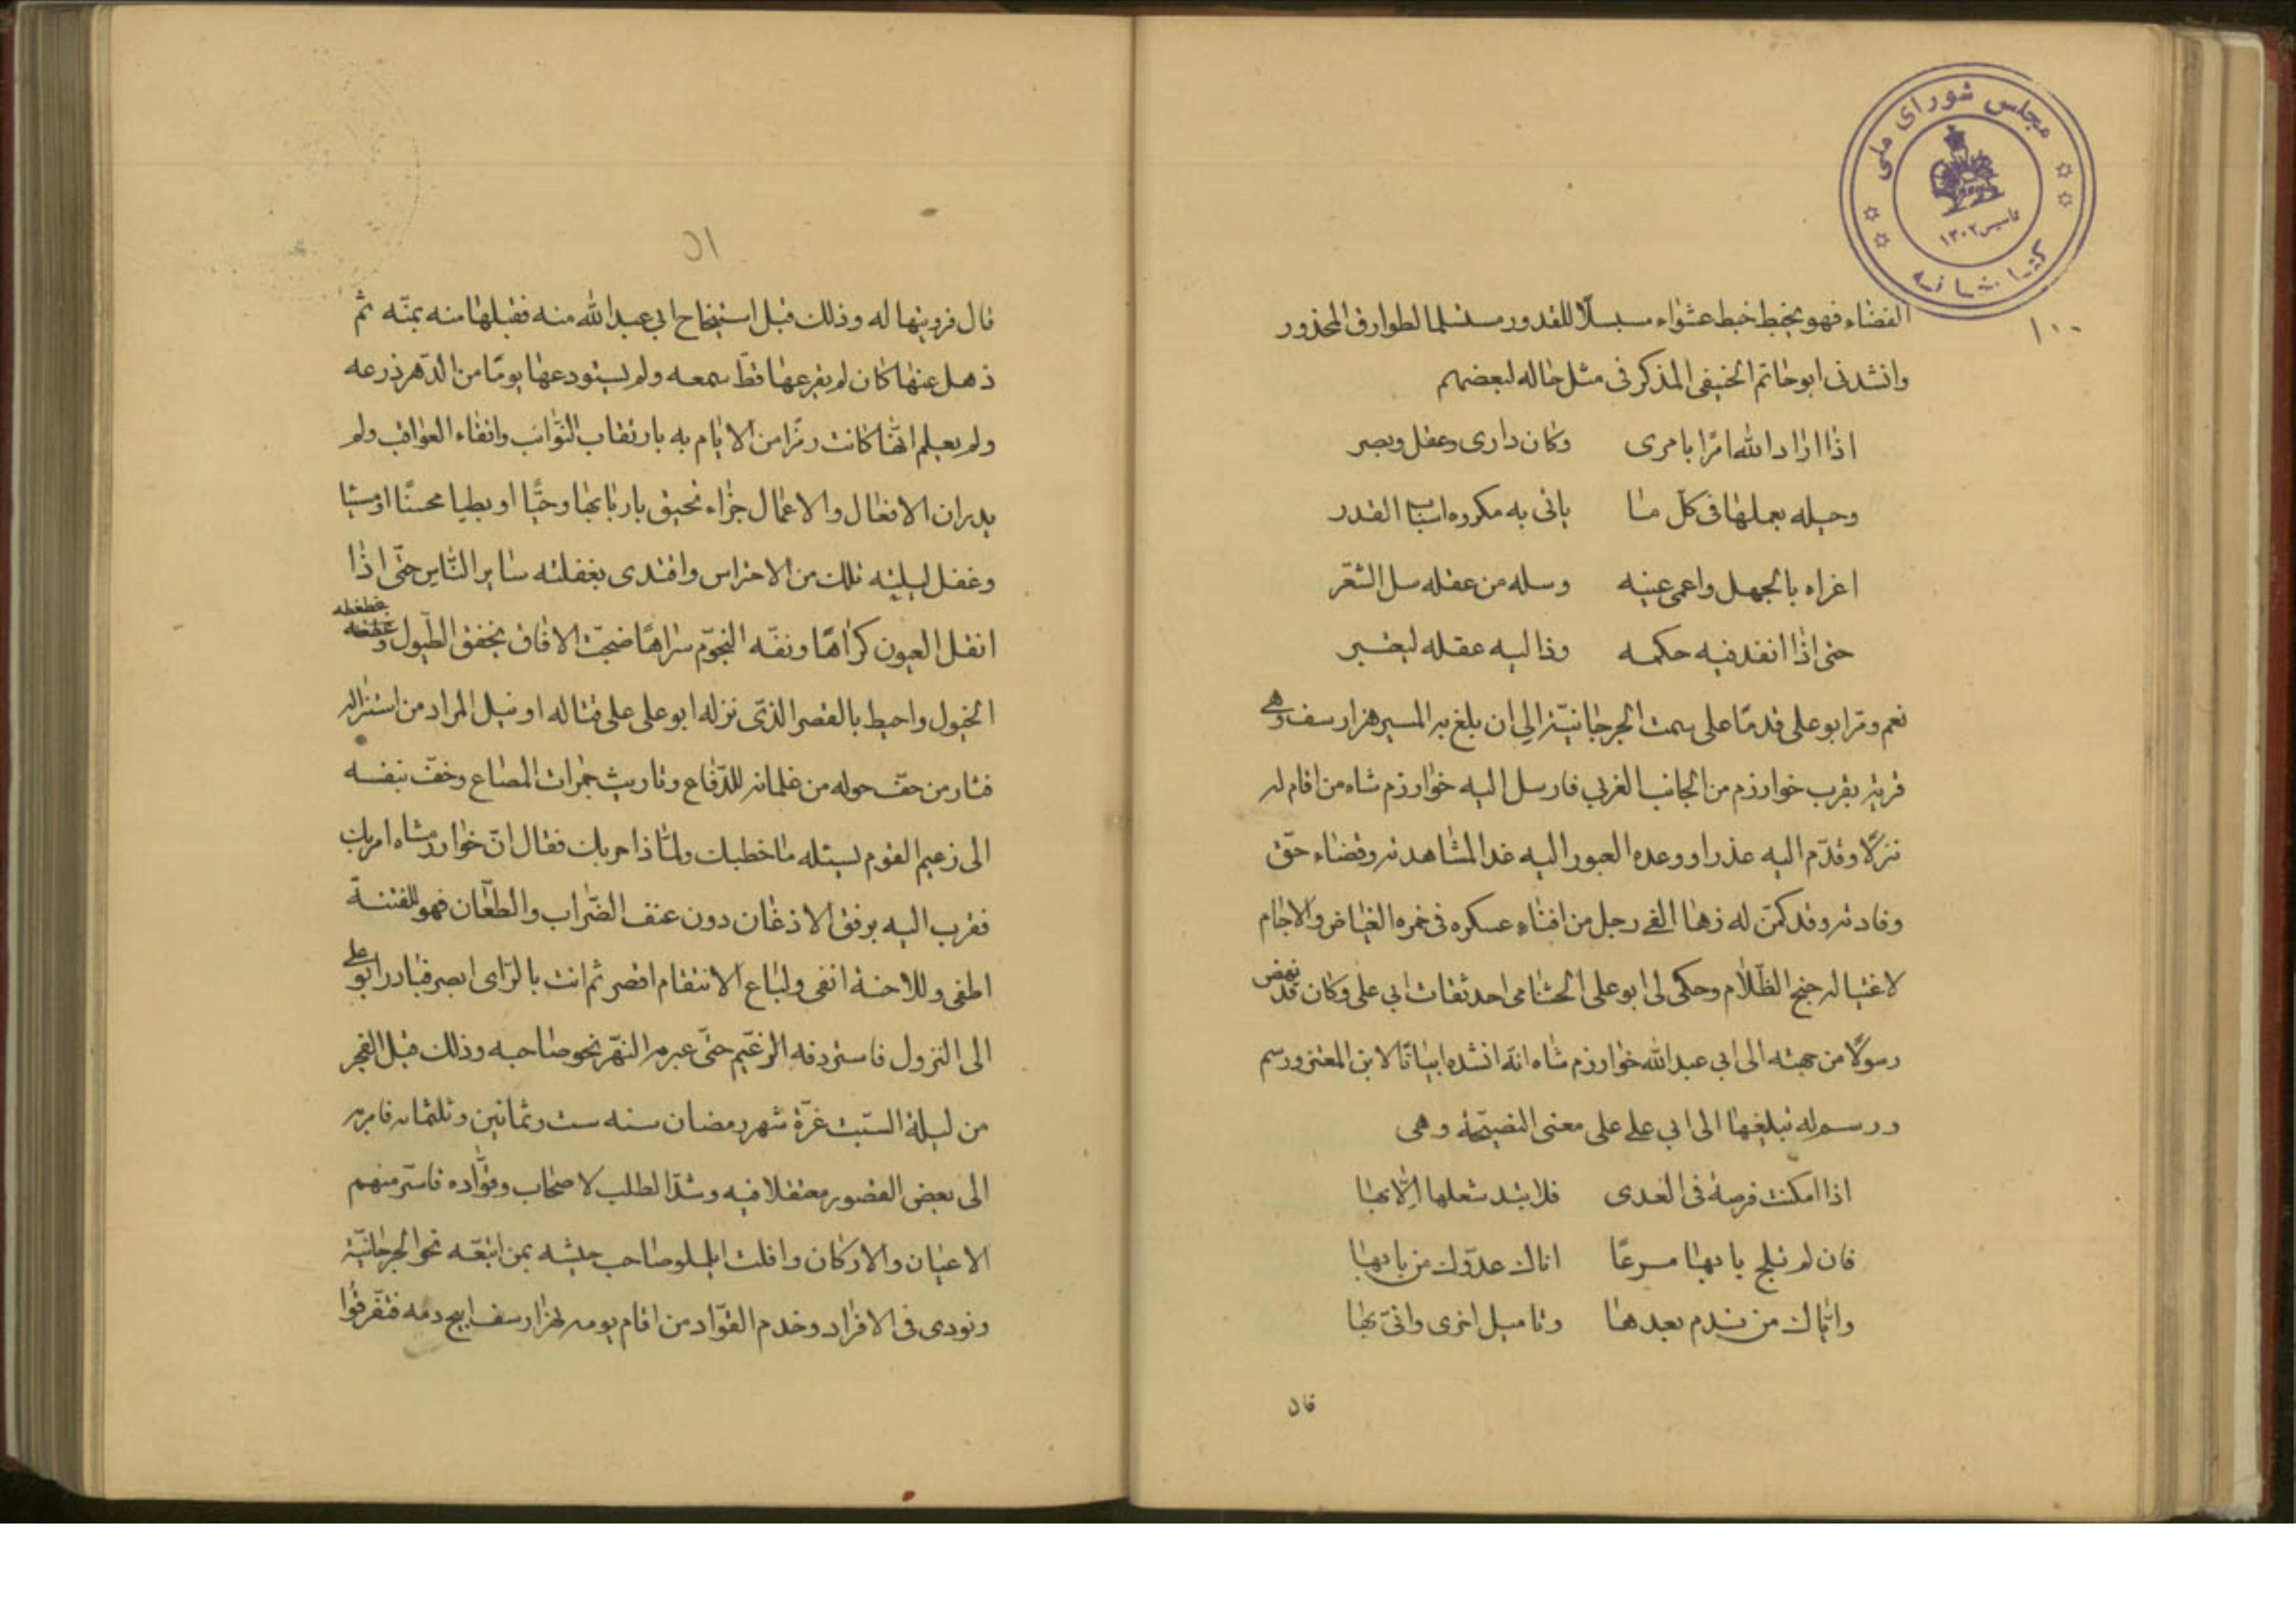 مجلس شورای ملی
تاسیس ۱۳۰۲
کتابخانه
۱۰۰
القضاء فهو يخبط خبط عشواء مستسلما لطوارق المحذور
وانشدنى ابو حاتم الحنيفى المذكر فى مثل حاله لبعضهم
اذا اراد الله امرًا بامرى وكان ذارى وعقل وبصر
وحيله يعملها فى كلّ ما ياتى به مكروه اسباب القدر
اغراه بالجهل واعمى عينه وسله من عقله سل الشعر
حتى اذا انفد فيه حكمه رد اليه عقله ليعتبر
نعم ومرّ ابو على قدمًا على سمت الجرجانيّة الى ان بلغ به المسير هزارسف وهى
قرية بقرب خوارزم من الجانب الغربي فارسل اليه خوارزم شاه من اقام له
نزلًا وقدّم اليه عذرا ووعده العبور اليه غدا لمشاهدته وقضاء حق
وفادته وقد كمّن له زهاء الفى رجل من افناء عسكره فى خمرة الغياض والاجام
لاغتياله جنح الظّلام وحكى لى ابو على الحشامى احد ثقات ابي على وكان قد نهض
رسولًا من جهته الى ابي عبد الله خوارزم شاه انّه انشده ابياتًا لابن المعتز ورسم
ورسم له تبليغها الى ابي على على معنى النصيحة وهى
اذا امكنت فرصة فى العدى فلا تبد شغلها الّا بها
فان لم تلج بابها مسرعًا اتاك عدوّك من بابها
وايّاك من ندم بعدها وتاميل اخرى وانّى بها
قال
۵۱
قال فرويتها له وذلك قبل استيخاح ابي عبد الله منه فقبلها منه بمنّه ثم
ذهل عنها كان لم يقرعها قطّ سمعه ولم يستودعها يومًا من الدّهر ذرعه
ولم يعلم انّها كانت رمزًا من الايام به بارتقاب النّوائب واتقاء العواقب ولم
يدر ان الافعال والاعمال جزاء تحيق باربابها وحيًّا او بطيا محسنًا او مسيئا
وغفل ليلته تلك من الاحتراس واقتدى بغفلته ساير النّاس حتّى اذا
اثقل العيون كراها ونفّه النجوم سراها ضجّت الافاق بخفق الطبول وغطغطه
الخيول واحيط بالقصر الذى نزله ابو على على قتاله او نيل المراد من استنزاله
فثار من حفّ حوله من غلمانه للدّفاع وتاريث جمرات المصاع وخفّ بنفسه
الى زعيم القوم يسئله ما خطبك ولماذا حربك فقال انّ خوارزمشاه امر بك
فقرب اليه برفق الاذعان دون عنف الضّراب والطعان فهو للفتنة
اطفى وللاحنة انفى ولباع الانتقام اقصر ثم انت بالرّاى ابصر فبادر ابو على
الى النزول فاستردفه الزعيم حتّى عبر به النهر نحو صاحبه وذلك قبل الفجر
من ليلة السّبت غرّة شهر رمضان سنه ست وثمانين وثلثمائه فامر به
الى بعض القصور معتقلا فيه وشدّ الطلب لاصحابه وقوّاده فاسر منهم
الاعيان والاركان وافلت ايلمنلو صاحب جيشه بمن اتبعّه نحو الجرجانيّة
ونودى فى الافراد وخدم القوّاد من اقام يومه بهزارسف ابيح دمه فتفرقوا